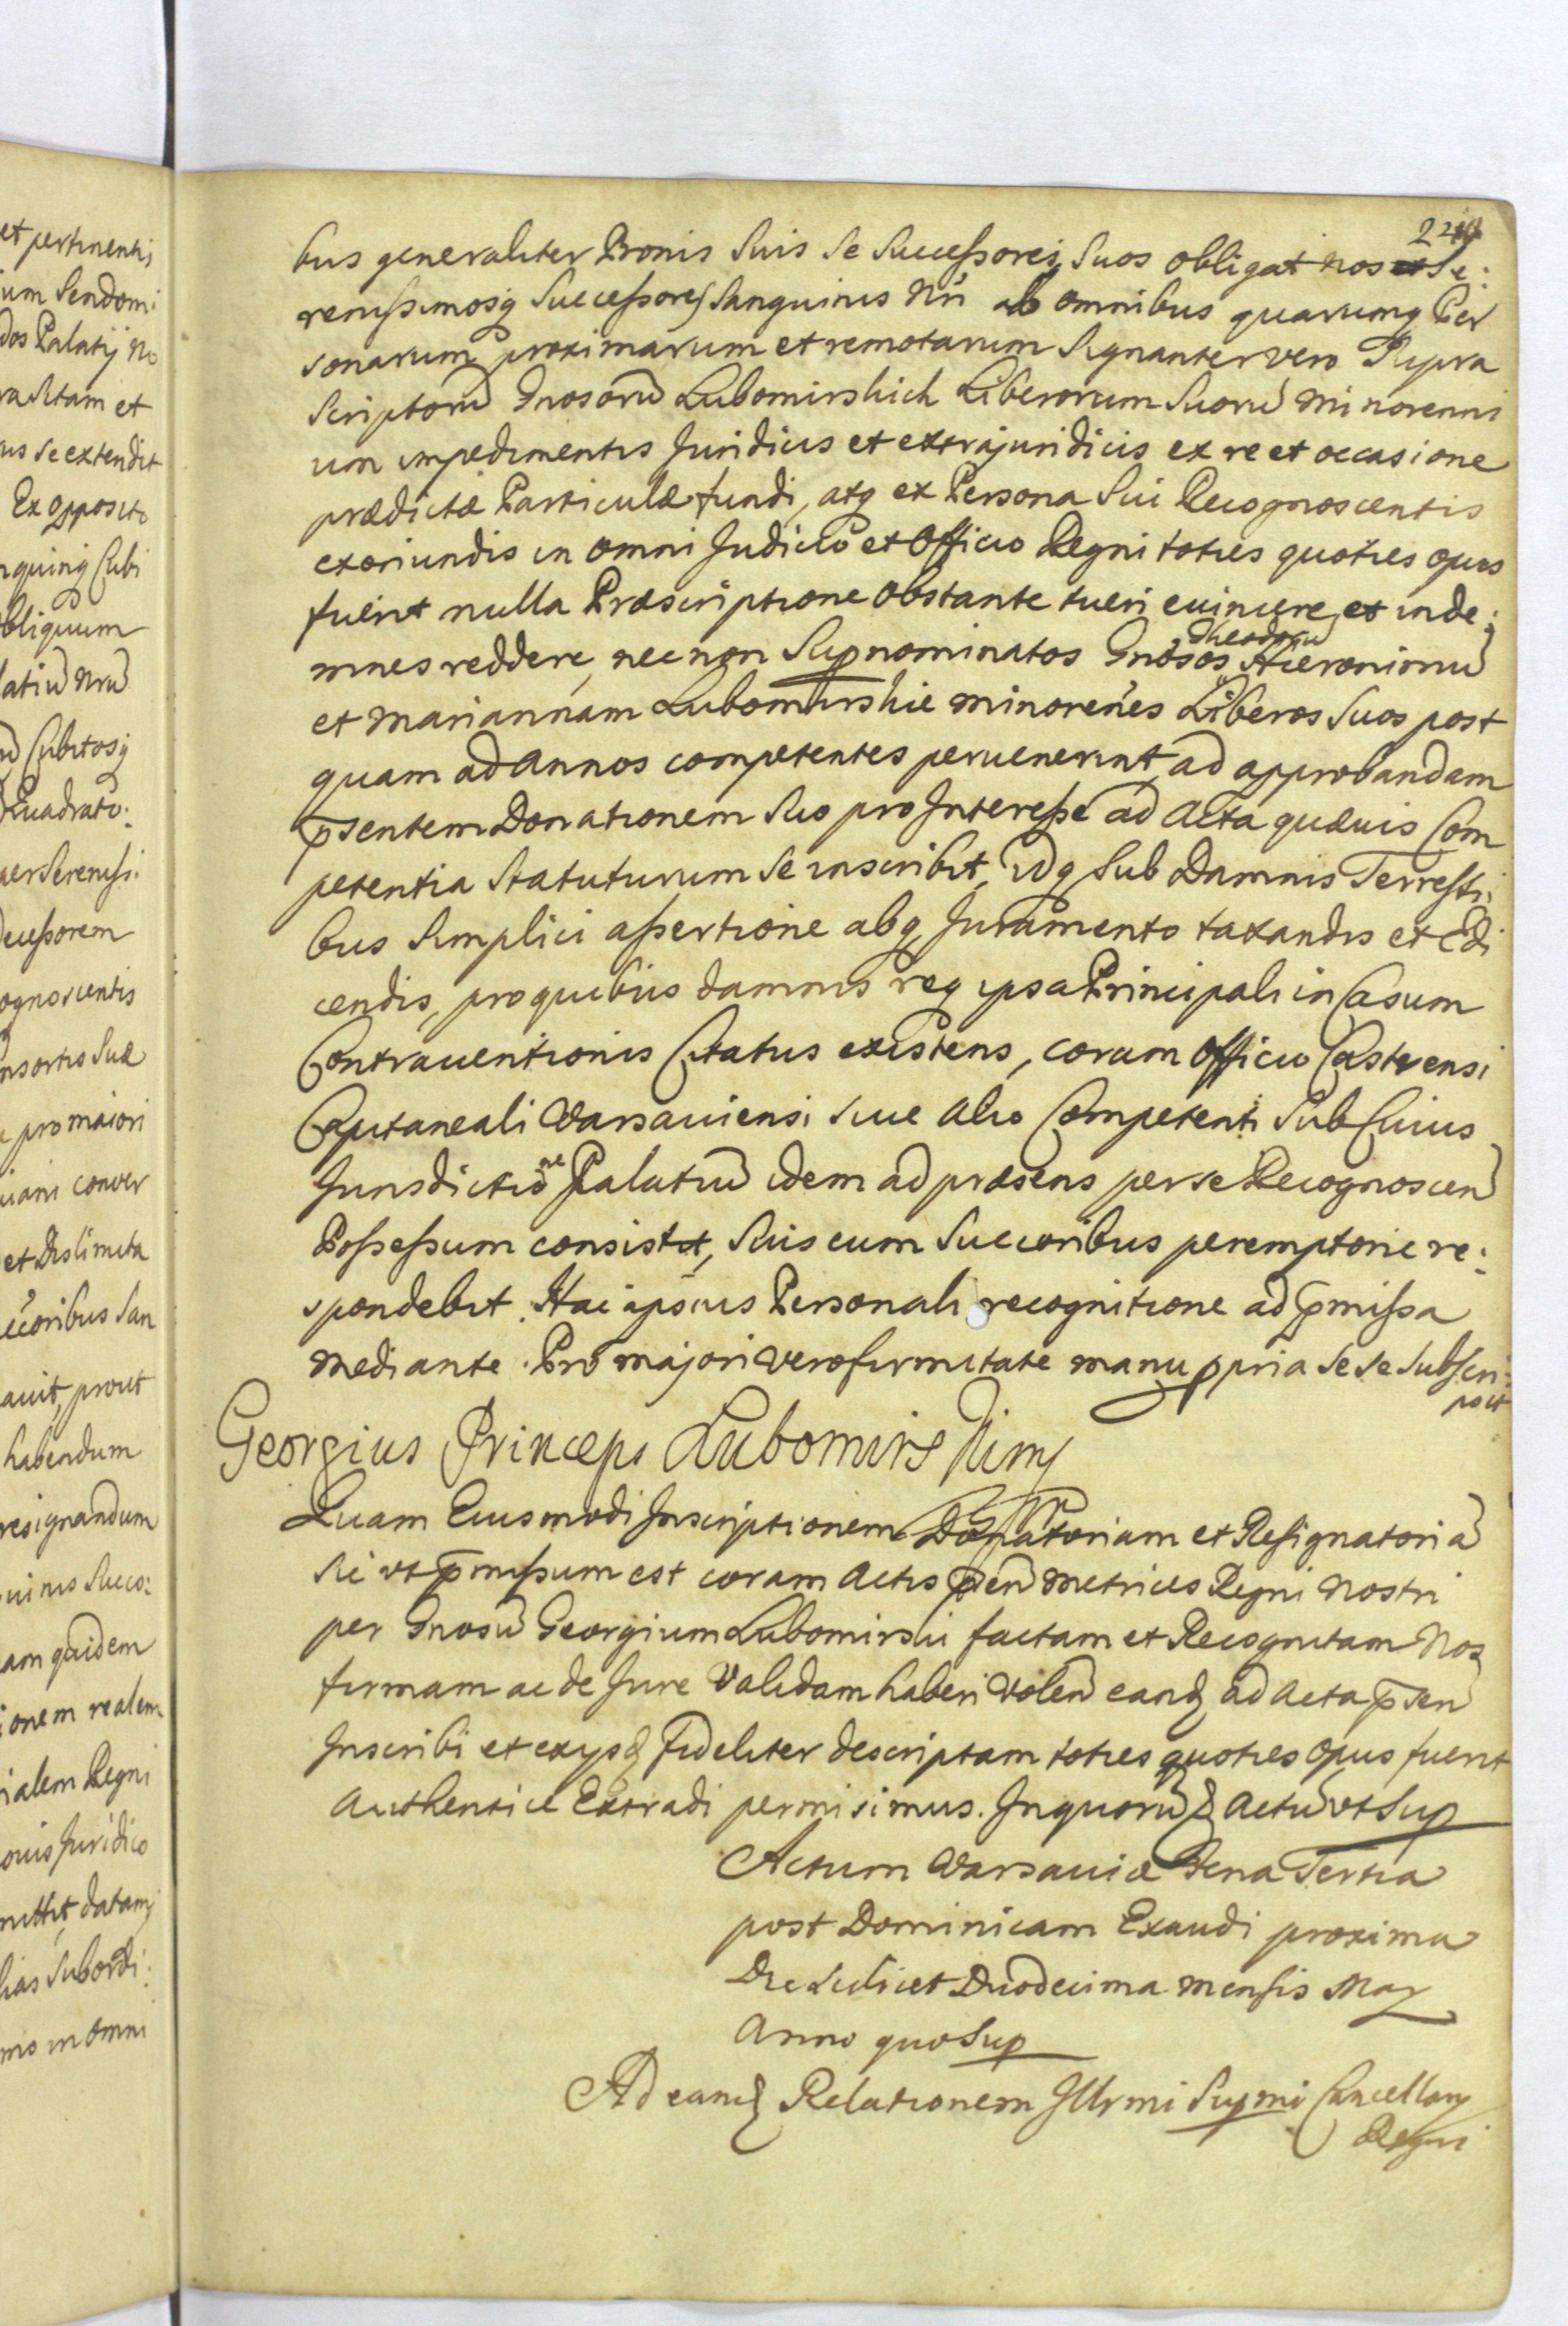 et pertinenti
um Sendomi
dos Palatij No
ra sitam et
us se extendit
Ex opposito
nquinq Cubi
obliquum
latiu Nru
Cubitosq
Quadrato:
per Serenissi:
decessorem
ognoscentis
nsortis Suæ
pro maiori
conver
et Dislimita
ccoribus San
auit, prout
habendum
resignandum
uinis Succo:
am quidem
ionem realem
ialem Regni
ouis Juridico
mittit datam
lias Subordi:
mo in Omni
bus generaliter Bonis Suis Se Successores Suos obligat Nos et Se:
renissimosq Successores Sanguinis Nri ab omnibus quarumq Per
sonarum proximarum et remotarum Signanter vero Supra
Scriptoru Gnosoru Lubomirskich Liberorum Suoru Minorenni
um impedimentis Juridicis et extrajuridicis ex re et occasione
prædictæ Particulæ fundi, atq ex Persona Sui Recognoscentis
exoriundis in omni Judicio et Officio Regni toties quoties opus
fuerit nulla Præscriptione Obstante tueri euincere et inde:
mnes reddere, necnon Supnominatos Gnosos Theodoru Hieronimu
et Mariannam Lubomirskie Minorenes Liberos Suos post
quam ad Annos competentes peruenerint, ad approbandam
psentem Donationem Suo pro Interesse ad Acta quæuis Com
petentia Statuturum Se inscribit, Idq Sub Damnis Terrestri
bus Simplici assertione absq Juramento taxandis et Edi
cendis, pro quibus damnis req ipsa Principali in Casum
Contrauentionis Citatus existens, coram Officio Castrensi
Capitaneali Varsauiensi siue Alio Competenti Sub Cuius
Jurisdictione Palatiu idem ad præsens per se Recognoscen
Possessum consistit, Suis cum Succoribus peremptorie re:
spondebit. Hac ipsius Personali recognitione ad pmissa
mediante. Pro majori vero firmitate manu ppria Se Se Subscri:
psit
Georgius Princeps Lubomirskimp
Quam Eiusmodi Inscriptionem Donatoriam et Resignatoria
Sic vt pmissum est coram Actis psen Metrices Regni Nostri
per Gnosu Georgium Lubomirski factam et Recognitam Nos
firmam ac de Jure Validam haberi Volen eand ad Acta psen
Inscribi et exijsd fideliter descriptam toties quoties Opus fuerit
Authentice Extradi permisimus. In quoru Actu vt Sup
Actum Varsauiæ Feria Tertia
post Dominicam Exaudi proxima
Die Scilicet Duodecima Mensis May
Anno quo Sup
Ad eand Relationem Illrmi Supmi Cancellary
Regni